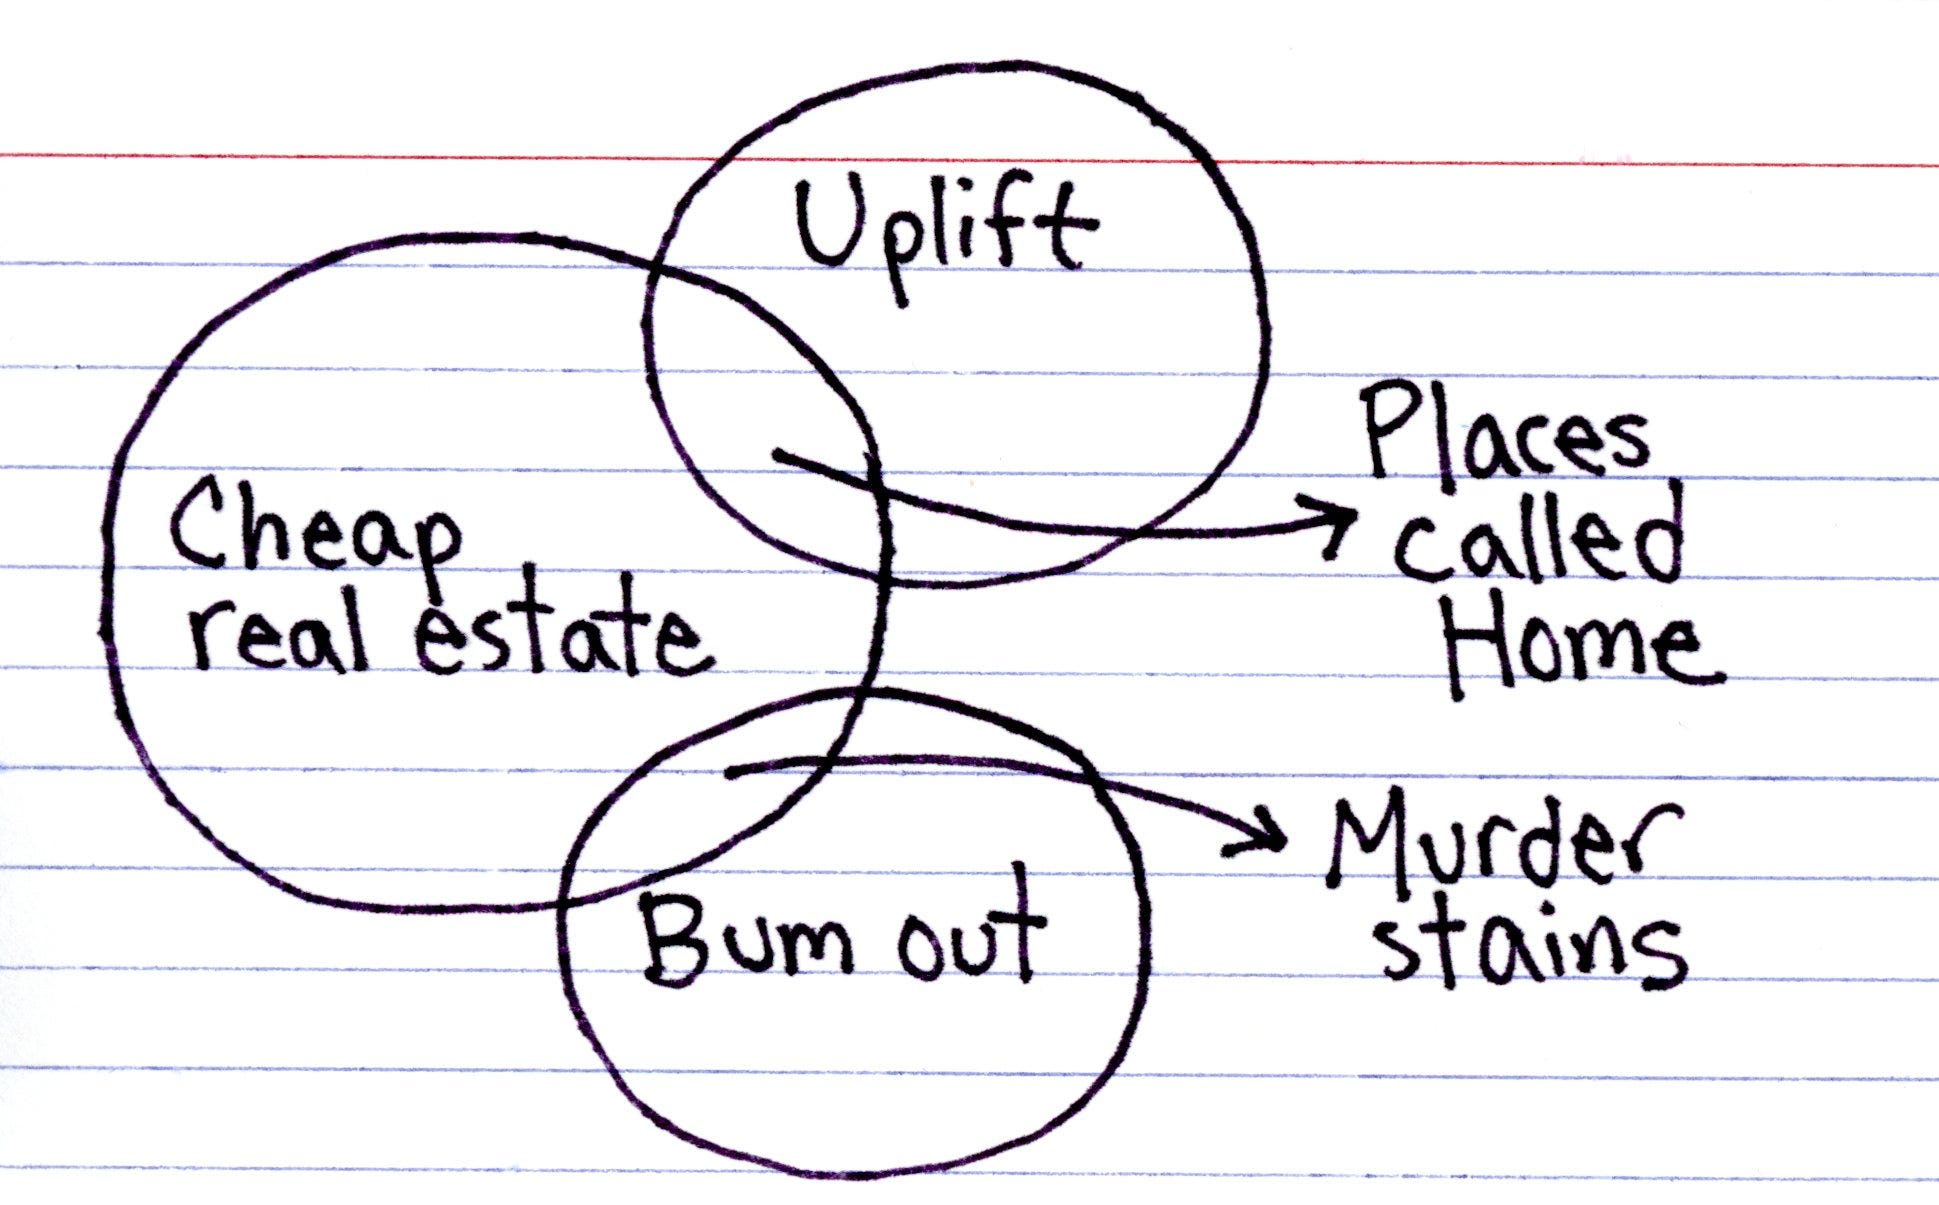 Uplift
Cheap
real estate
Places
called
Home
Bum out
Murder
stains